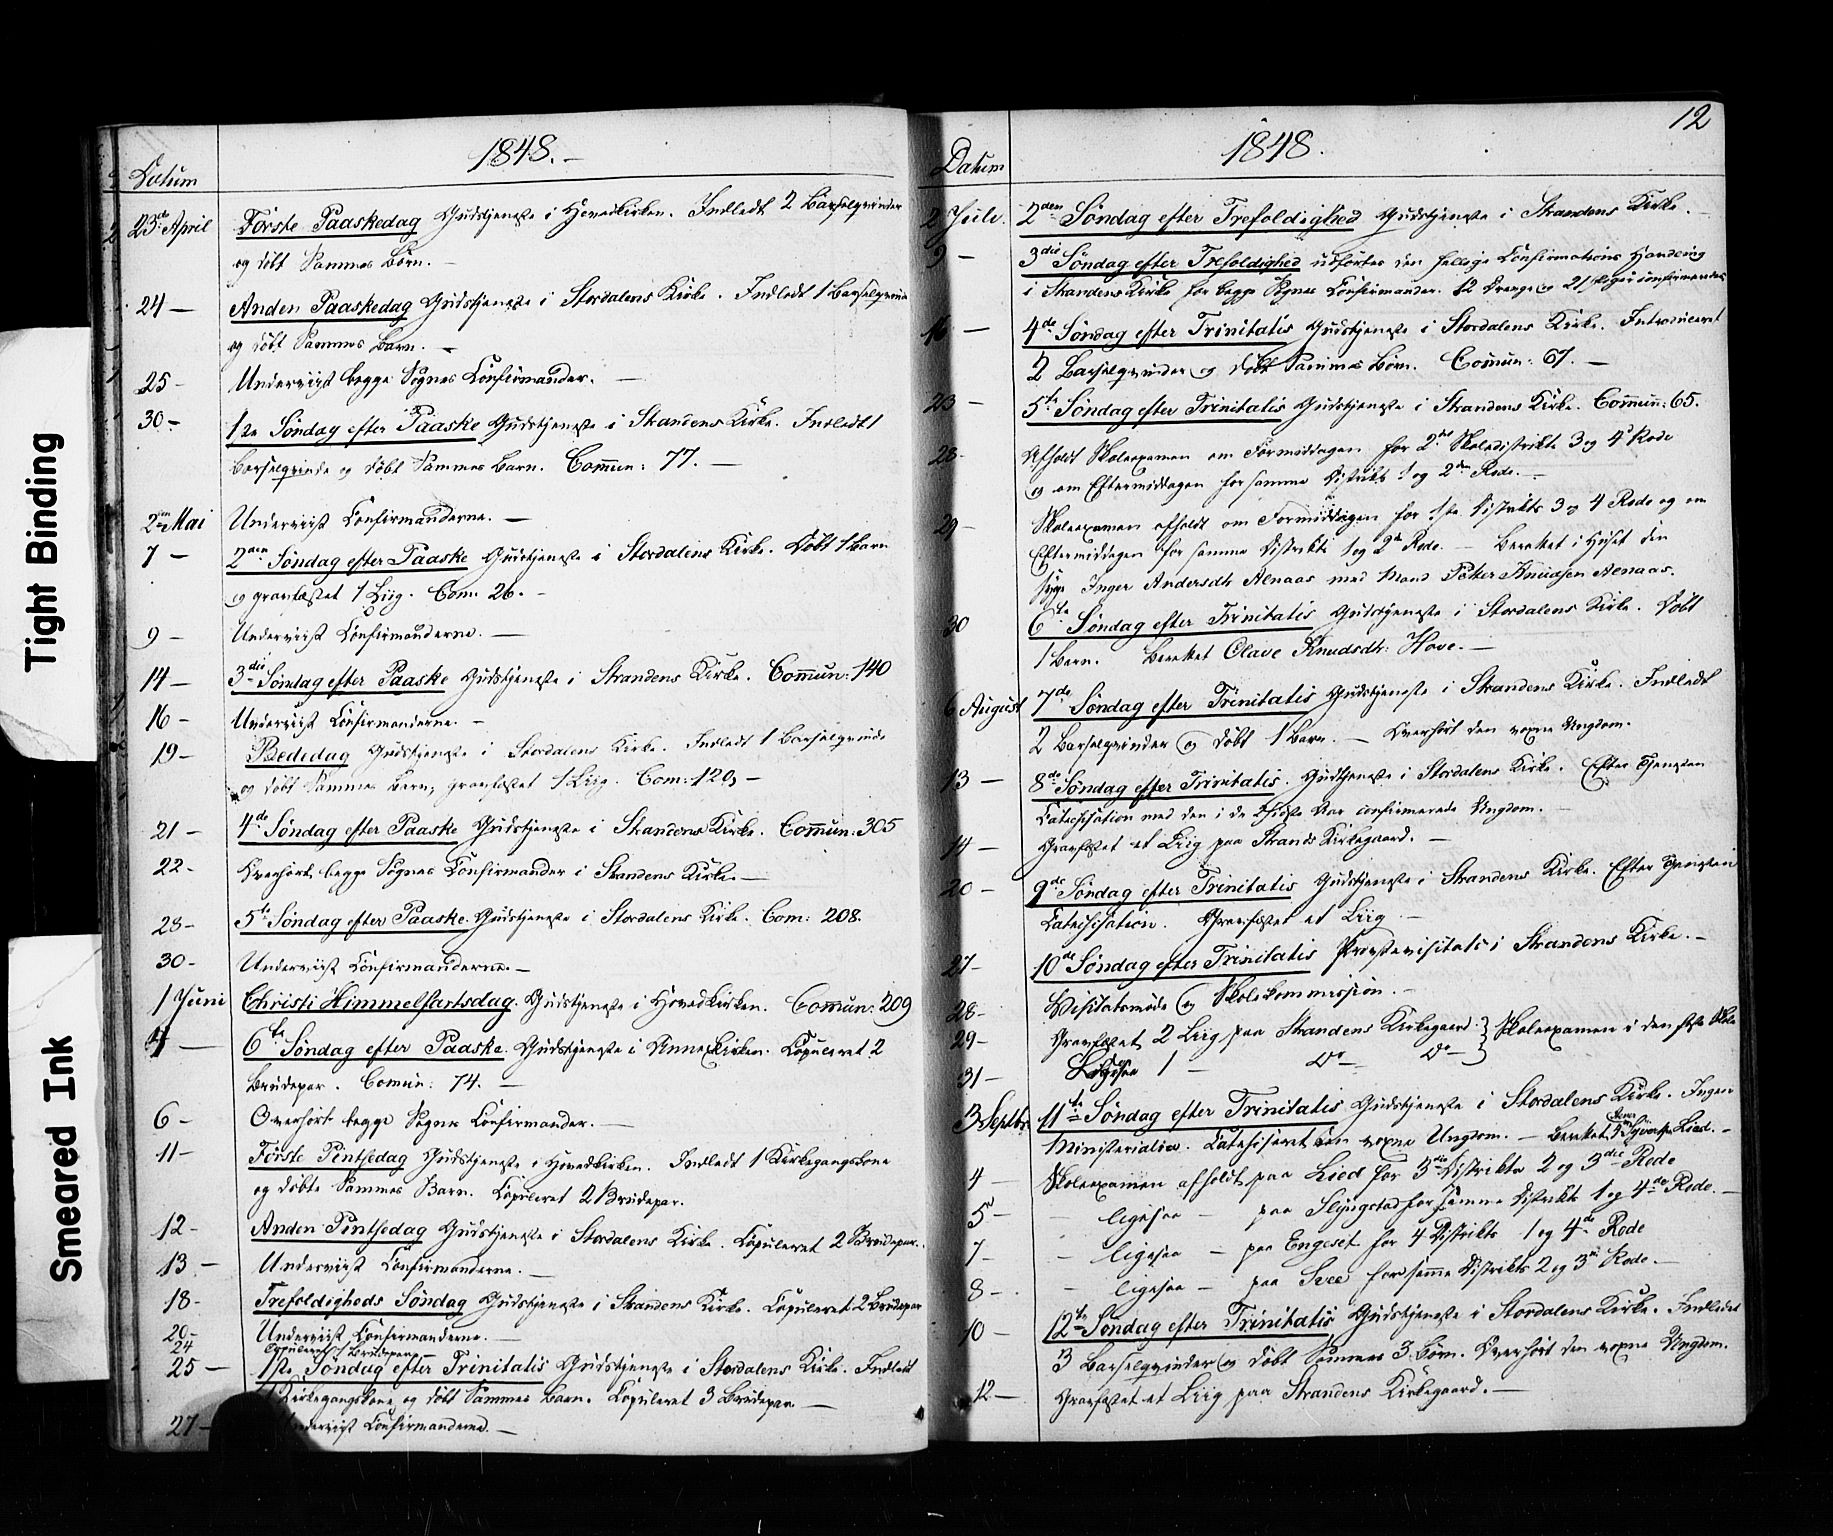 Tight Binding
Smeared Ink
1848.
Datum
23de April Første Paaskedag Gudstjeneste i Hovedkirken. Indledt 2 Barselqvinder
og døbt Sammes Børn. —
24 — Anden Paaskedag Gudstjeneste i Stordalens Kirke. Indledt 1 Barselqvinde
og døbt Sammes Barn. —
25 — Underviist begge Sognes Confirmander. —
30 — 1ste Søndag efter Paaske Gudstjeneste i Strandens Kirke. Indledt 1
Barselqvinde og døbt Sammes Barn. Commun: 77. —
2den Mai Underviist Confirmanderne. —
7 — 2den Søndag efter Paaske Gudstjeneste i Stordalens Kirke. Døbt 1 Barn
og gravfæstet 1 Liig. Com: 26. —
9 — Underviist Confirmanderne. —
14 — 3die Søndag efter Paaske Gudstjeneste i Strandens Kirke. Commun: 140
16 — Underviist Confirmanderne. —
19 — Bededag Gudstjeneste i Stordalens Kirke. Indledt 1 Barselqvinde
og døbt Sammes Barn, gravfæstet 1 Liig. Com: 120, —
21 — 4de Søndag efter Paaske Gudstjeneste i Strandens Kirke. Commun: 305
22 — Overhørt begge Sognes Confirmander i Strandens Kirke. —
28 — 5te Søndag efter Paaske. Gudstjeneste i Stordalens Kirke. Com: 208.
30 — Underviist Confirmanderne. —
1 Juni Christi Himmelfartsdag. Gudstjeneste i Hovedkirken. Commun: 209
4 — 6te Søndag efter Paaske. Gudstjeneste i Annexkirken. Copuleret 2
Brudepar. Comun: 74. —
6 — Overhørt begge Sognes Confirmander. —
11 — Første Pintsedag Gudstjeneste i Hovedkirken. Indledt 1 Kirkegangskone
og døbte Sammes Barn. Copuleret 2 Brudepar.
12 — Anden Pintsedag Gudstjeneste i Stordalens Kirke. Copuleret 2 Brudepar.
13 — Underviist Confirmanderne. —
18 — Trefoldigheds Søndag Gudstjeneste i Strandens Kirke. Copuleret 2 Brudepar
20 — Underviist Confirmanderne. —
24 Copuleret 1 Brudepar —
25 — 1ste Søndag efter Trinitatis Gudstjeneste i Stordalens Kirke. Indledt
1 Kirkegangskone og døbt Sammes Barn. Copuleret 3 Brudepar —
27 — Underviist Confirmanderne. —
12
1848.
Datum
2 Juli. 2den Søndag efter Trefoldighed Gudstjeneste i Strandens Kirke. —
9 — 3die Søndag efter Trefoldighed udførtes den hellige Confirmations Handling
i Strandens Kirke for begge Sognes Confirmander. 12 Drenge og 21 Piger confirmeredes
16 — 4de Søndag efter Trinitatis Gudstjeneste i Stordalens Kirke. Introduceret
2 Barselqvinder og døbt Sammes Børn. Commun: 67. —
23 — 5te Søndag efter Trinitatis Gudstjeneste i Strandens Kirke. Commun: 65.
28 — Afholdt Skoleexamen om Formiddagen for 2det Skoledistrikts 3 og 4de Rode
og om Eftermiddagen for samme Distrikts 1 og 2den Rode. —
29 — Skoleexamen afholdt om Formiddagen for 1ste Distrikts 3 og 4 Rode og om
Eftermiddagen for samme Distrikts 1 og 2de Rode. — Berettet i Huset den
syge Inger Andersdtr Alnaas med Mand Petter Knudsen Alnaas.
30 6te Søndag efter Trinitatis Gudstjeneste i Stordalens Kirke. Døbt
1 Barn. Berettet Olave Knudsdtr: Hove. —
6 August 7de Søndag efter Trinitatis Gudstjeneste i Strandens Kirke. Indledt
2 Barselqvinder og døbt 1 Barn. — Overhørt den voxne Ungdom.
13 — 8de Søndag efter Trinitatis. Gudstjeneste i Stordalens Kirke. Efter Tjenesten
Catechisation med den i de 2 sidste Aar confirmerede Ungdom. —
14 — Gravfæstet et Liig paa Strands Kirkegaard. —
20 — 9de Søndag efter Trinitatis Gudstjeneste i Strandens Kirke. Efter Tjenesten
Catechisation. Gravfæstet et Liig. —
27 — 10de Søndag efter Trinitatis Provstevisitats i Strandens Kirke. —
28 — Visitatsmøde og Skolekommission. —
29 — Gravfæstet 2 Liig paa Strandens Kirkegaard } Skoleexamen i den faste Skole
31 — Ligesaa 1 — Do — Do —
3 Septbr. 11te Søndag efter Trinitatis Gudstjeneste i Stordalens Kirke. Ingen
Ministerialia. Catechiseret den voxne Ungdom. — Berettet Syvertsen Lied. —
4 Skoleexamen afholdt paa Lied for 3die Distrikts 2 og 3die Rode
5 — — ligesaa — paa Slyngstad for samme Distrikts 1 og 4de Rode. —
7 — — ligesaa — paa Engeset for 4 Distrikts 1 og 4de Rode
8 — — ligesaa — paa Svee for samme Distrikts 2 og 3de Rode. —
10 — 12te Søndag efter Trinitatis Gudstjeneste i Stordalens Kirke. Indledet
3 Barselqvinder og døbt Sammes 3 Børn. Overhørt den voxne Ungdom.
12 — Gravfæstet et Liig paa Strandens Kirkegaard. —